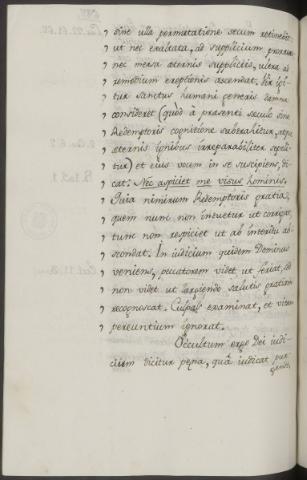 " sine ulla permutatione secum retinebit
" ut nec exaltata, ad supplicium proruat
" nec mersa æternis suppliciis, ultra ad
" remedium ereptionis ascendat. Vir igi-
" tur sanctus humani generis damna
" consideret (quòd à præsenti sæculo sine
" Redemptoris cognitione subtrahitur, atque
" æternis ignibus irreparabiliter sepeli-
" tur) et eius vocem in se suscipiens, di-
" cat: Nec aspiciet me visus hominis.
" Quia nimirum Redemptoris gratia,
" quem nunc non intuetur ut corrigat,
" tunc non respiciet ut ab interitu ab-
" scondat. In iudicium quidem Dominus
" veniens, peccatorem videt ut feriat, sed
" non videt ut largiendo salutis gratiam
" recognoscat. Culpas examinat, et vitam
" pereuntium ignorat.
Occultum ergo Dei iudi-
cium dicitur pœna, quâ iudicat pur-
gandos